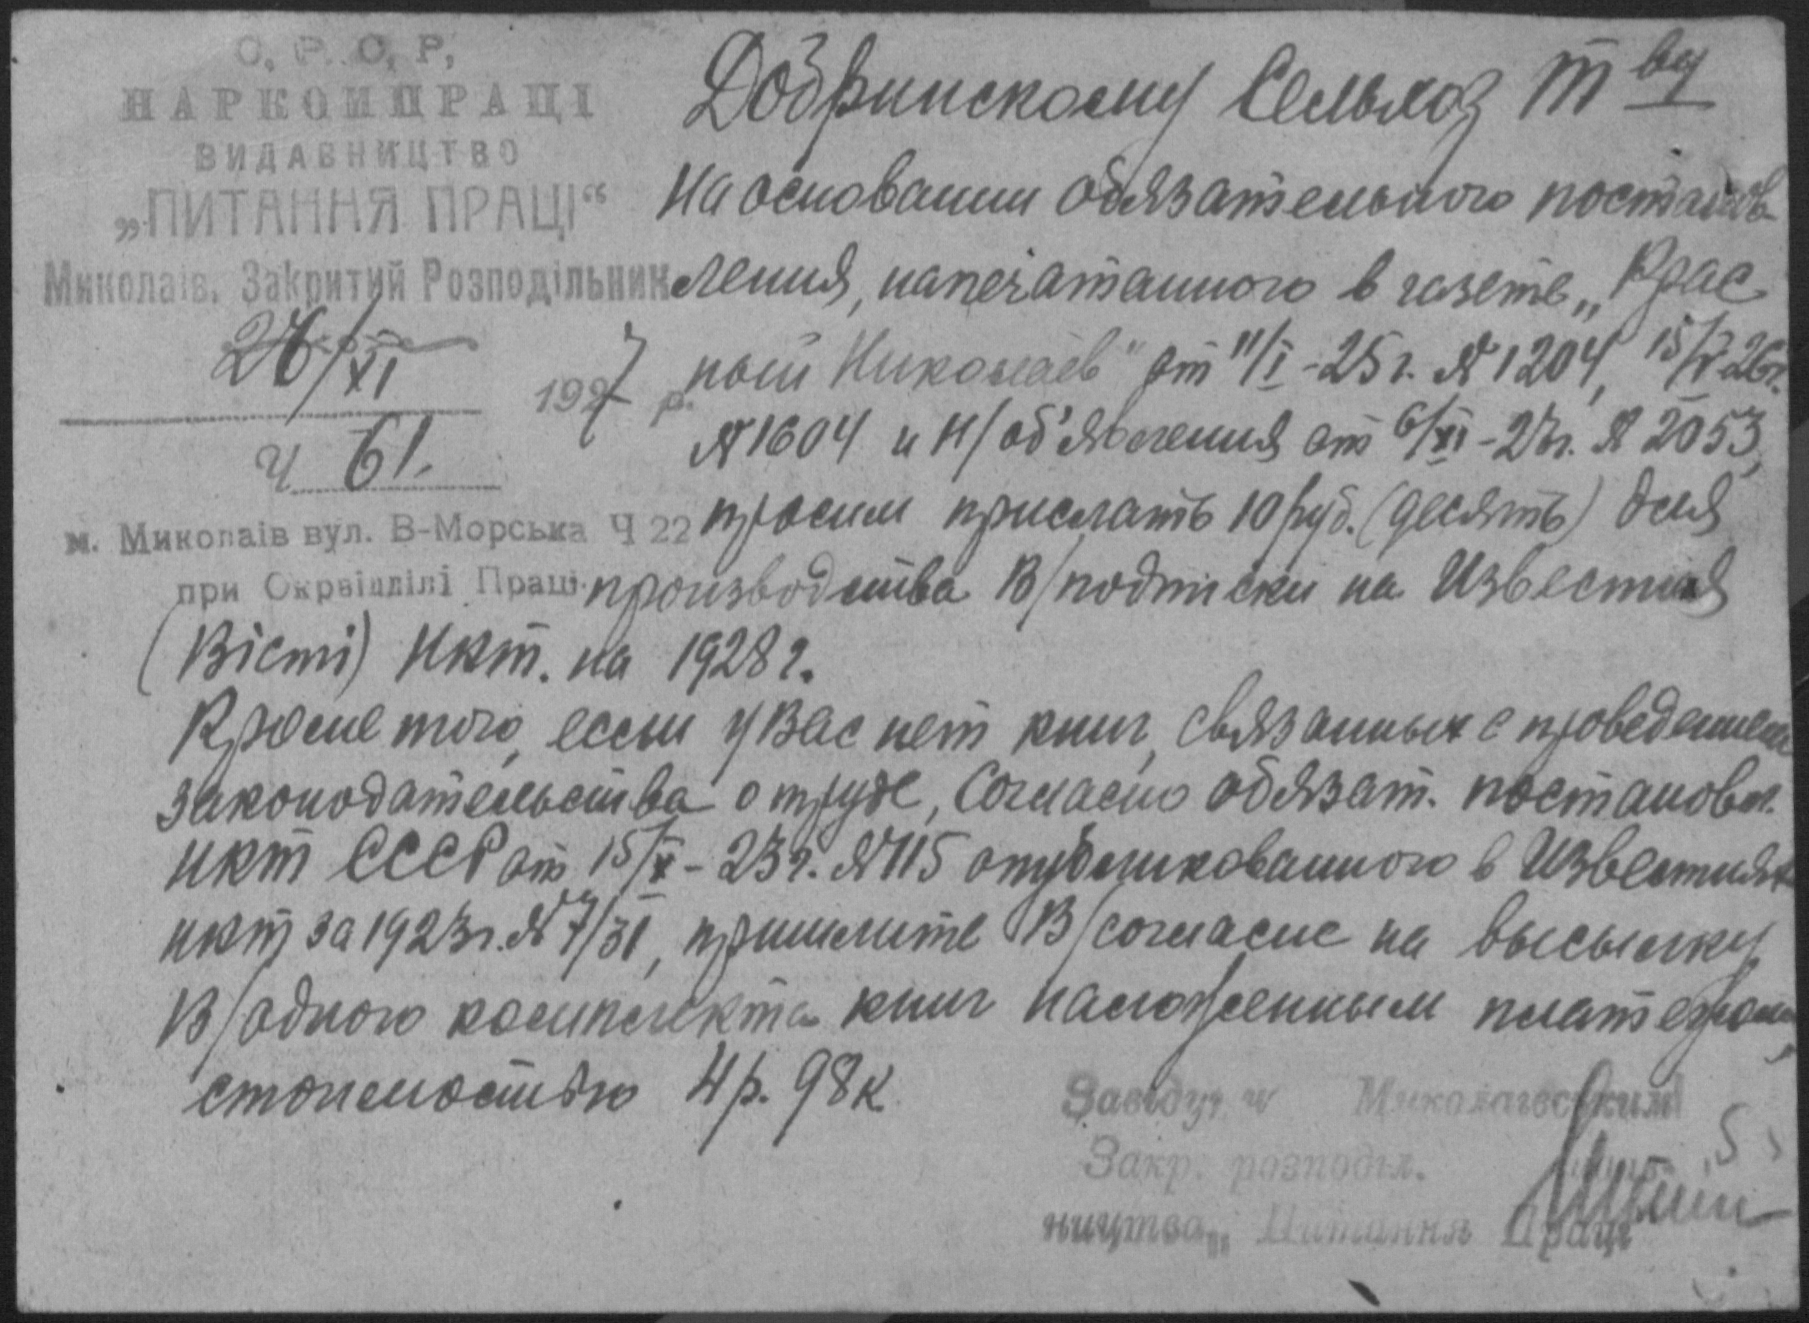 С. Р. С. Р.
НАРКОМПРАЦІ
ВИДАВНИЦТВО
„ПИТАННЯ ПРАЦІ“
Миколаїв. Закритий Розподільник
26/XI 1927 р.
Ч 61.
м. Миколаів вул. В-Морська Ч 22
при Окрвідділі Праці.
Добринскому Сельхоз т ву
На основании обязательного постанов
ления, напечатанного в газете „Крас
ный Николаев" от 11/I-25 г. № 1204, 15/V-26г.
№ 1604 и Н/об'явления от 6/XI-27г. № 2053,
просим прислать 10 руб. (десять) для
производства В/подписки на Известия
(Вісті) Нкт. на 1928 г.
Кроме того, если у Вас нет книг, связанных с проведением
законодательства о труде, согласно обязат. постановл.
НКТ СССР от 15/X-23г. № 115 опубликованного в Известиях
нкт за 1923г. № 7/31, пришлите В/согласие на высылку
В/одного комплекта книг наложенным платежом,
стоимостью 4р. 98к
Завідуч Миколаївським
Закр. розподіл.
ництва „Питання Праці